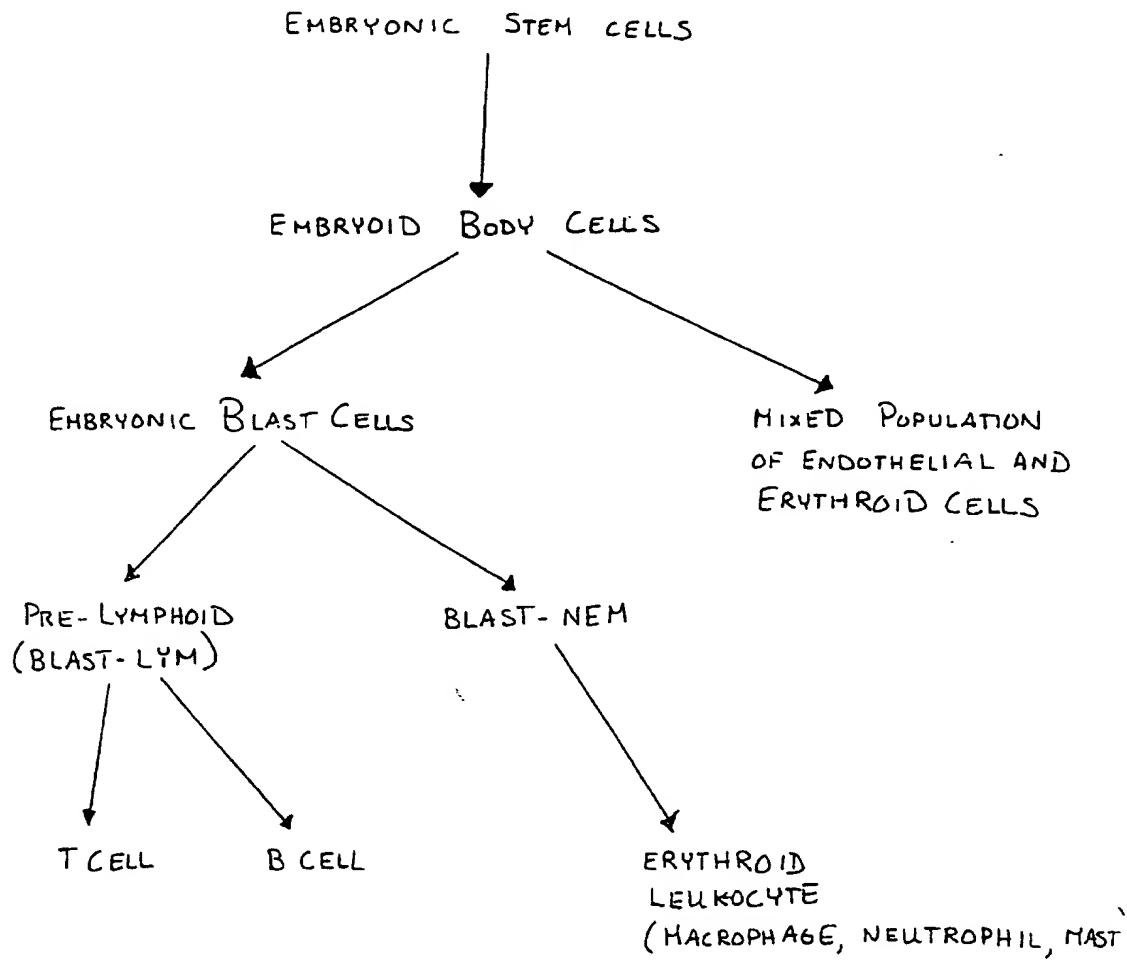 EMBRYONIC STEM CELLS
EMBRYOID BODY CELLS
EMBRYONIC BLAST CELLS
MIXED POPULATION
OF ENDOTHELIAL AND
ERYTHROID CELLS
PRE-LYMPHOID
(BLAST-LYM)
BLAST-NEM
T CELL
B CELL
ERYTHROID
LEUKOCYTE
(MACROPHAGE, NEUTROPHIL, MAST